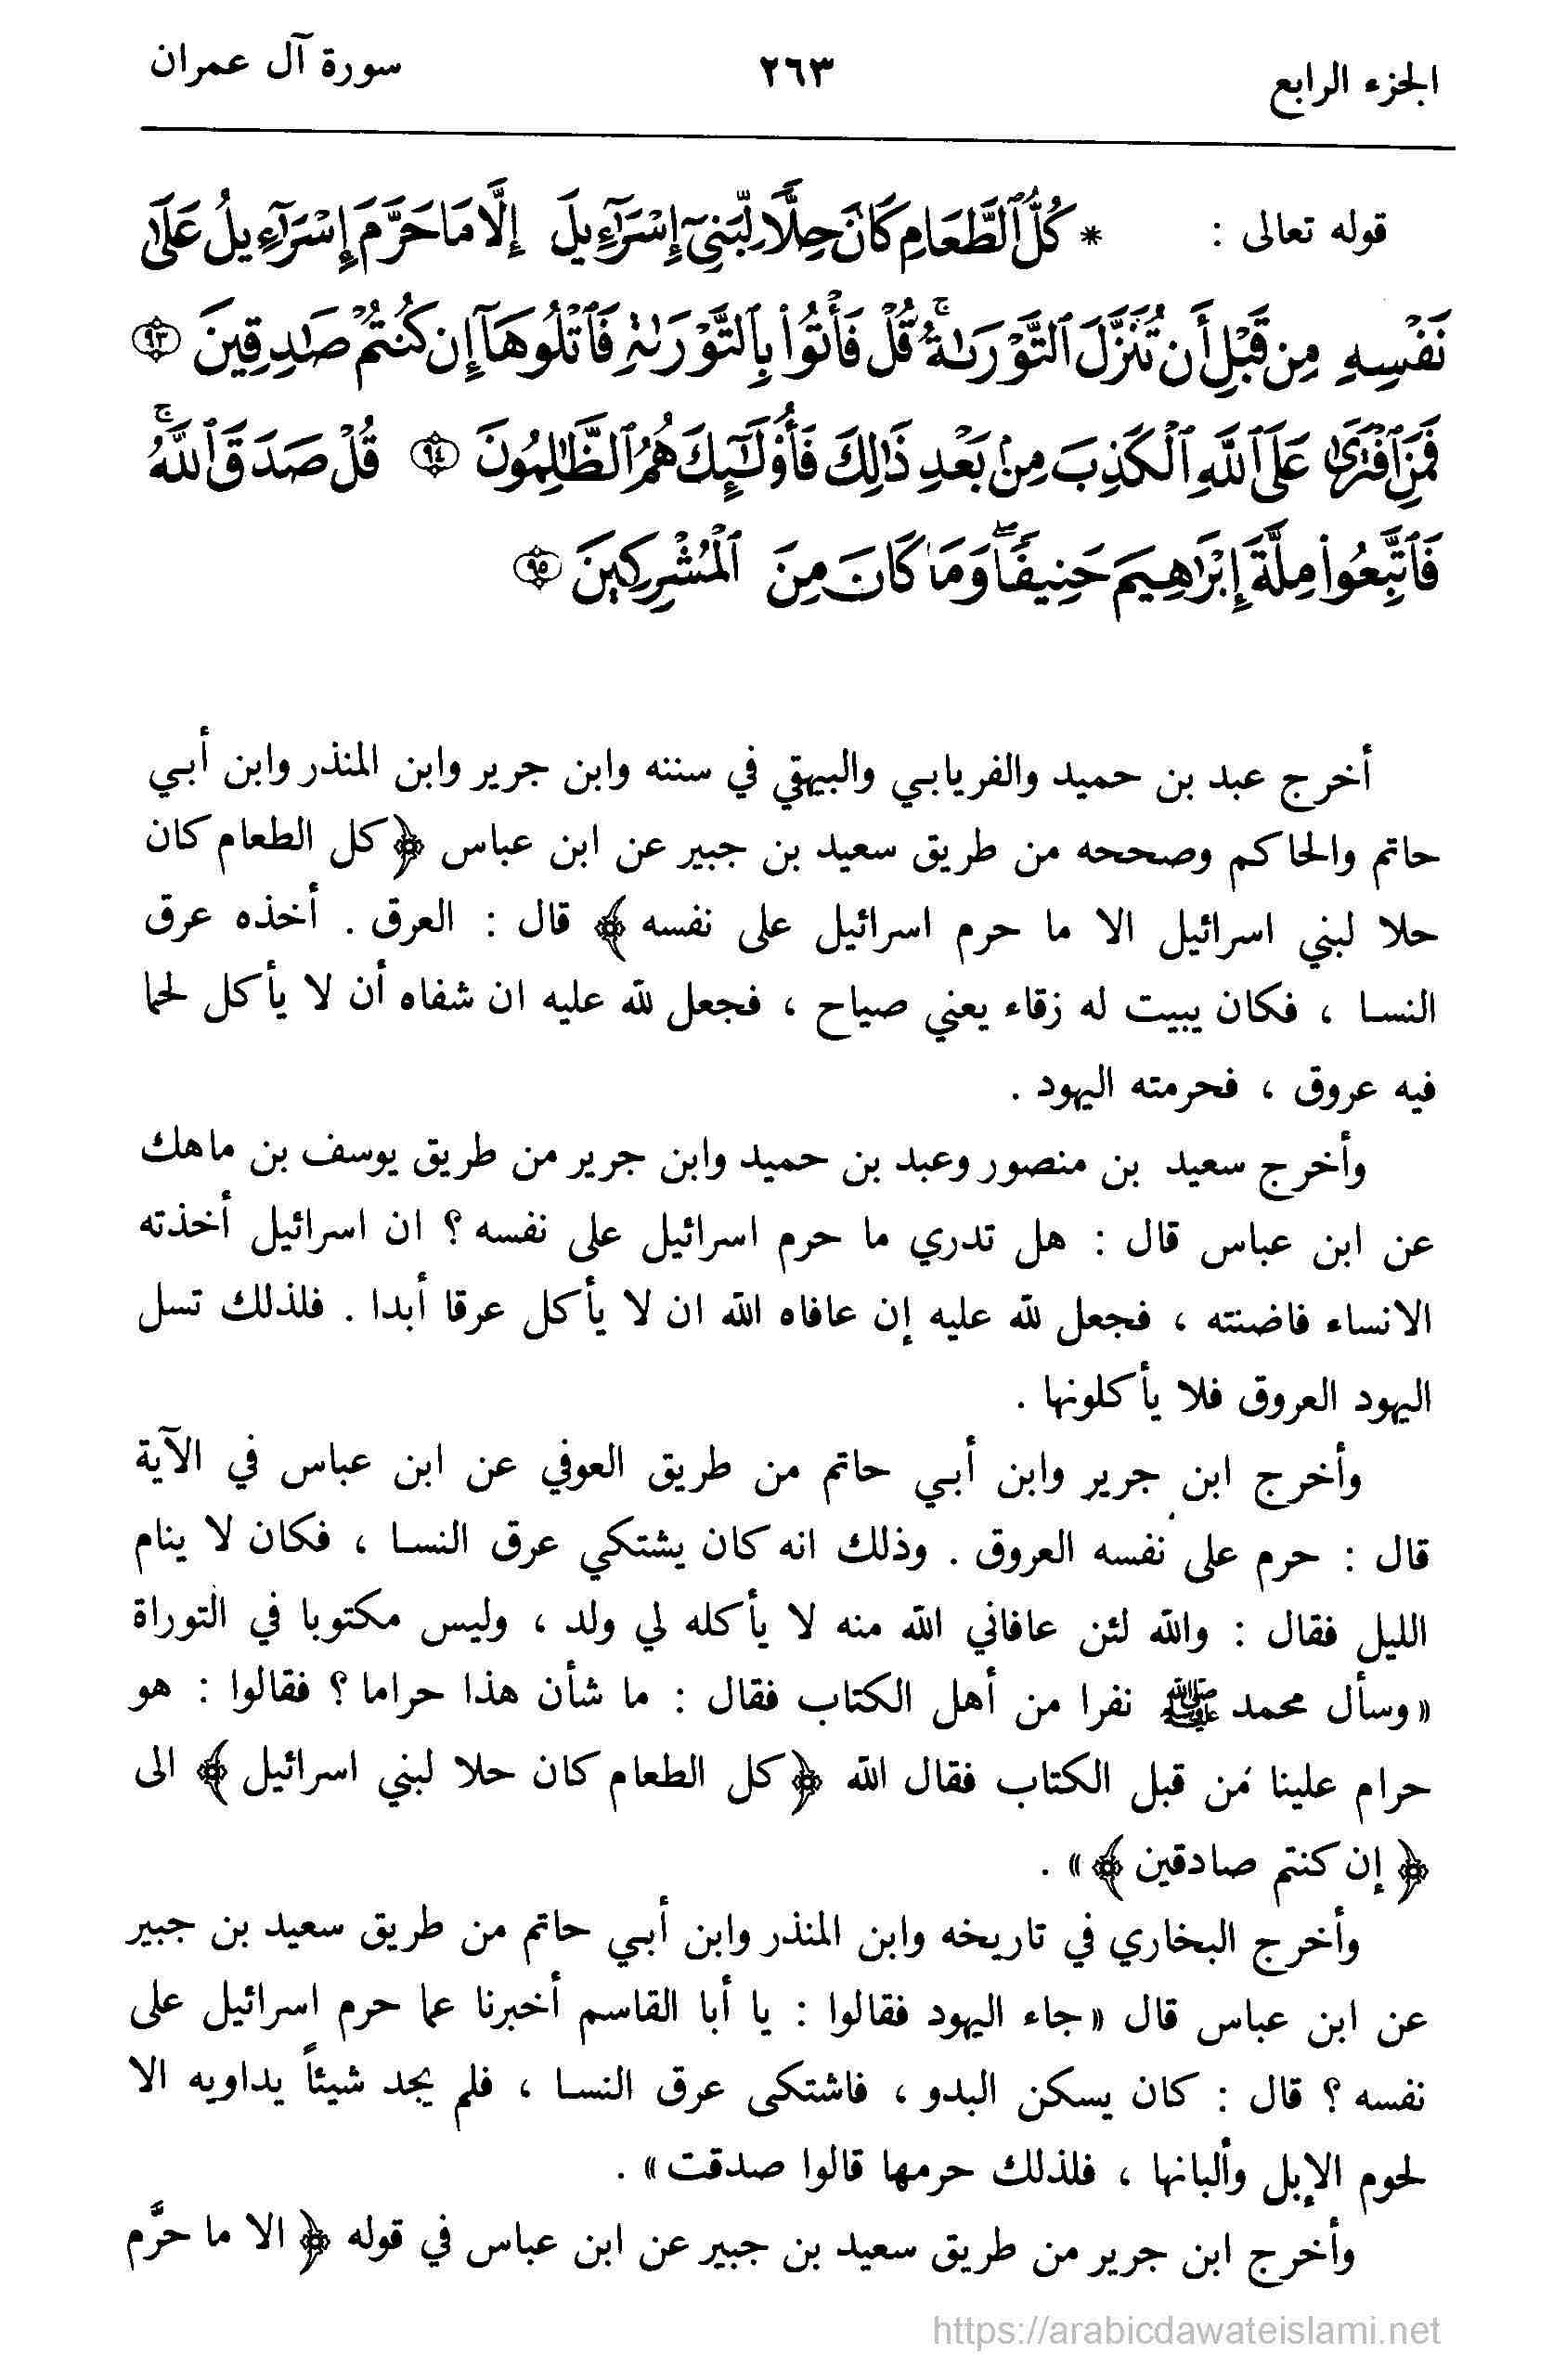 الجزء الرابع ٢٦٣ سورة آل عمران
قوله تعالى : * كُلُّ ٱلطَّعَامِ كَانَ حِلًّا لِّبَنِىٓ إِسْرَٰٓءِيلَ إِلَّا مَا حَرَّمَ إِسْرَٰٓءِيلُ عَلَىٰ
نَفْسِهِۦ مِن قَبْلِ أَن تُنَزَّلَ ٱلتَّوْرَىٰةُ ۗ قُلْ فَأْتُوا۟ بِٱلتَّوْرَىٰةِ فَٱتْلُوهَآ إِن كُنتُمْ صَـٰدِقِينَ ٩٣
فَمَنِ ٱفْتَرَىٰ عَلَى ٱللَّهِ ٱلْكَذِبَ مِنۢ بَعْدِ ذَٰلِكَ فَأُو۟لَـٰٓئِكَ هُمُ ٱلظَّـٰلِمُونَ ٩٤ قُلْ صَدَقَ ٱللَّهُ ۗ
فَٱتَّبِعُوا۟ مِلَّةَ إِبْرَٰهِيمَ حَنِيفًا ۖ وَمَا كَانَ مِنَ ٱلْمُشْرِكِينَ ٩٥
أخرج عبد بن حميد والفريابي والبيهقي في سننه وابن جرير وابن المنذر وابن أبي
حاتم والحاكم وصححه من طريق سعيد بن جبير عن ابن عباس ﴿كل الطعام كان
حلا لبني اسرائيل الا ما حرم اسرائيل على نفسه ﴾ قال : العرق . أخذه عرق
النسا ، فكان يبيت له زقاء يعني صياح ، فجعل لله عليه ان شفاه أن لا يأكل لحما
فيه عروق ، فحرمته اليهود .
وأخرج سعيد بن منصور وعبد بن حميد وابن جرير من طريق يوسف بن ماهك
عن ابن عباس قال : هل تدري ما حرم اسرائيل على نفسه ؟ ان اسرائيل أخذته
الانساء فاضنته ، فجعل لله عليه إن عافاه الله ان لا يأكل عرقا أبدا . فلذلك تسل
اليهود العروق فلا يأكلونها .
وأخرج ابن جرير وابن أبي حاتم من طريق العوفي عن ابن عباس في الآية
قال : حرم على نفسه العروق . وذلك انه كان يشتكي عرق النسا ، فكان لا ينام
الليل فقال : والله لئن عافاني الله منه لا يأكله لي ولد ، وليس مكتوبا في التوراة
« وسأل محمد ﷺ نفرا من أهل الكتاب فقال : ما شأن هذا حراما ؟ فقالوا : هو
حرام علينا من قبل الكتاب فقال الله ﴿كل الطعام كان حلا لبني اسرائيل ﴾ الى
﴿ إن كنتم صادقين ﴾ » .
وأخرج البخاري في تاريخه وابن المنذر وابن أبي حاتم من طريق سعيد بن جبير
عن ابن عباس قال « جاء اليهود فقالوا : يا أبا القاسم أخبرنا عما حرم اسرائيل على
نفسه ؟ قال : كان يسكن البدو ، فاشتكى عرق النسا ، فلم يجد شيئاً يداويه الا
لحوم الإبل وألبانها ، فلذلك حرمها قالوا صدقت » .
وأخرج ابن جرير من طريق سعيد بن جبير عن ابن عباس في قوله ﴿ الا ما حرَّم
https://arabicdawateislami.net